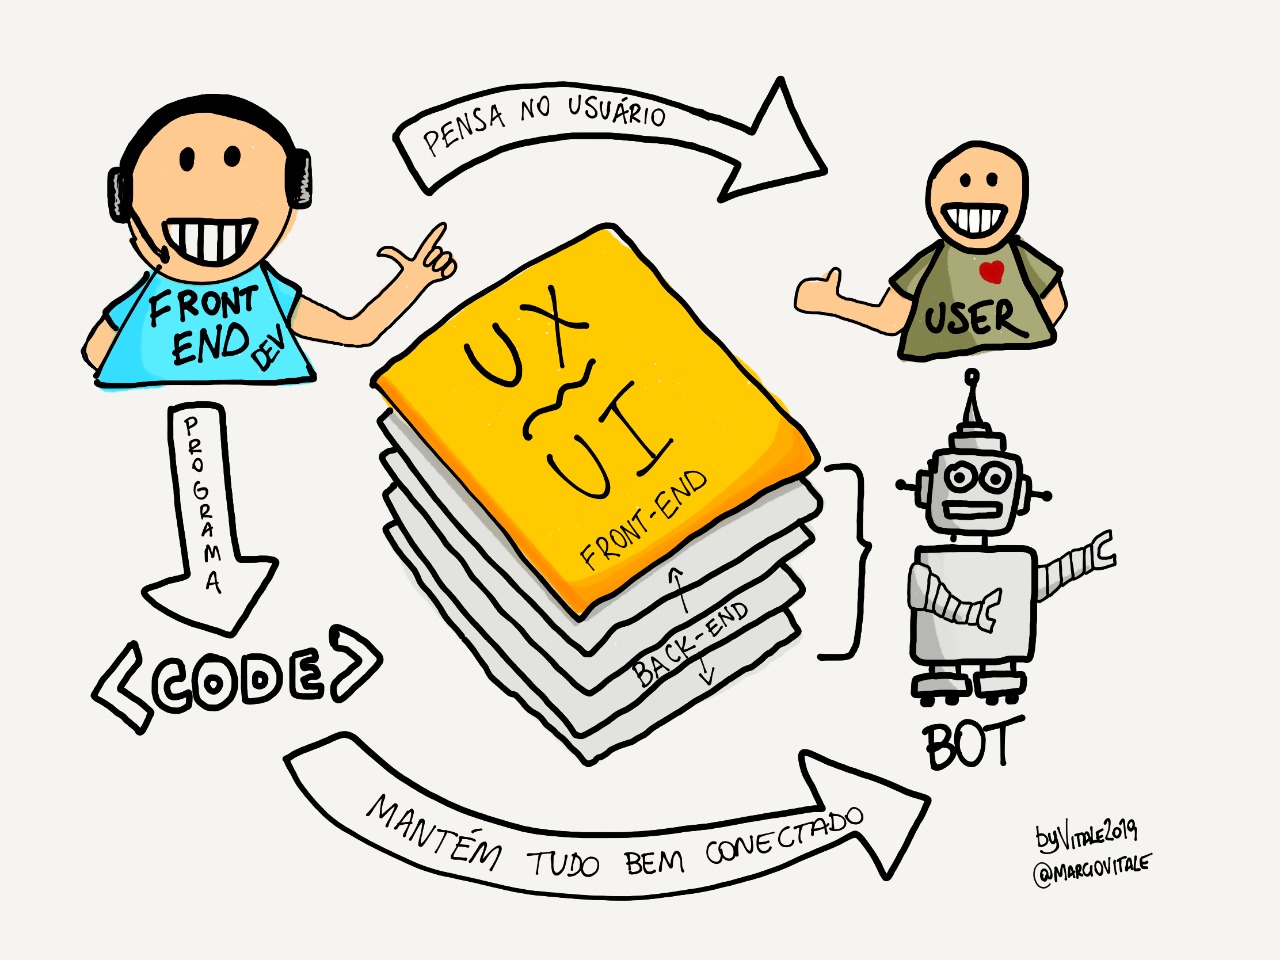 PENSA NO USUÁRIO
FRONT
END
DEV
USER
UX
UI
FRONT-END
BACK-END
PROGRAMA
<CODE>
BOT
MANTÉM TUDO BEM CONECTADO
byVITALE2019
@MARCIOVITALE